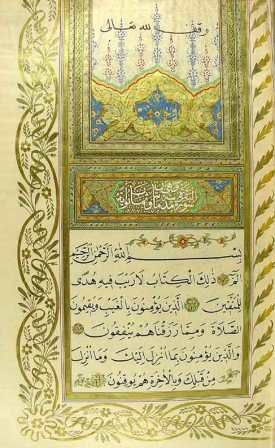 وقف لله تعالى
بِسْمِ اللهِ الرَّحْمٰنِ الرَّحِيمِ
الٓمٓ ذٰلِكَ الْكِتَابُ لَا رَيْبَ فِيهِ هُدًى
لِلْمُتَّقِينَ الَّذِينَ يُؤْمِنُونَ بِالْغَيْبِ وَيُقِيمُونَ
الصَّلٰاةَ وَمِمَّا رَزَقْنَاهُمْ يُنْفِقُونَ
وَالَّذِينَ يُؤْمِنُونَ بِمَا اُنْزِلَ اِلَيْكَ وَمَا اُنْزِلَ
مِنْ قَبْلِكَ وَبِالْاٰخِرَةِ هُمْ يُوقِنُونَ